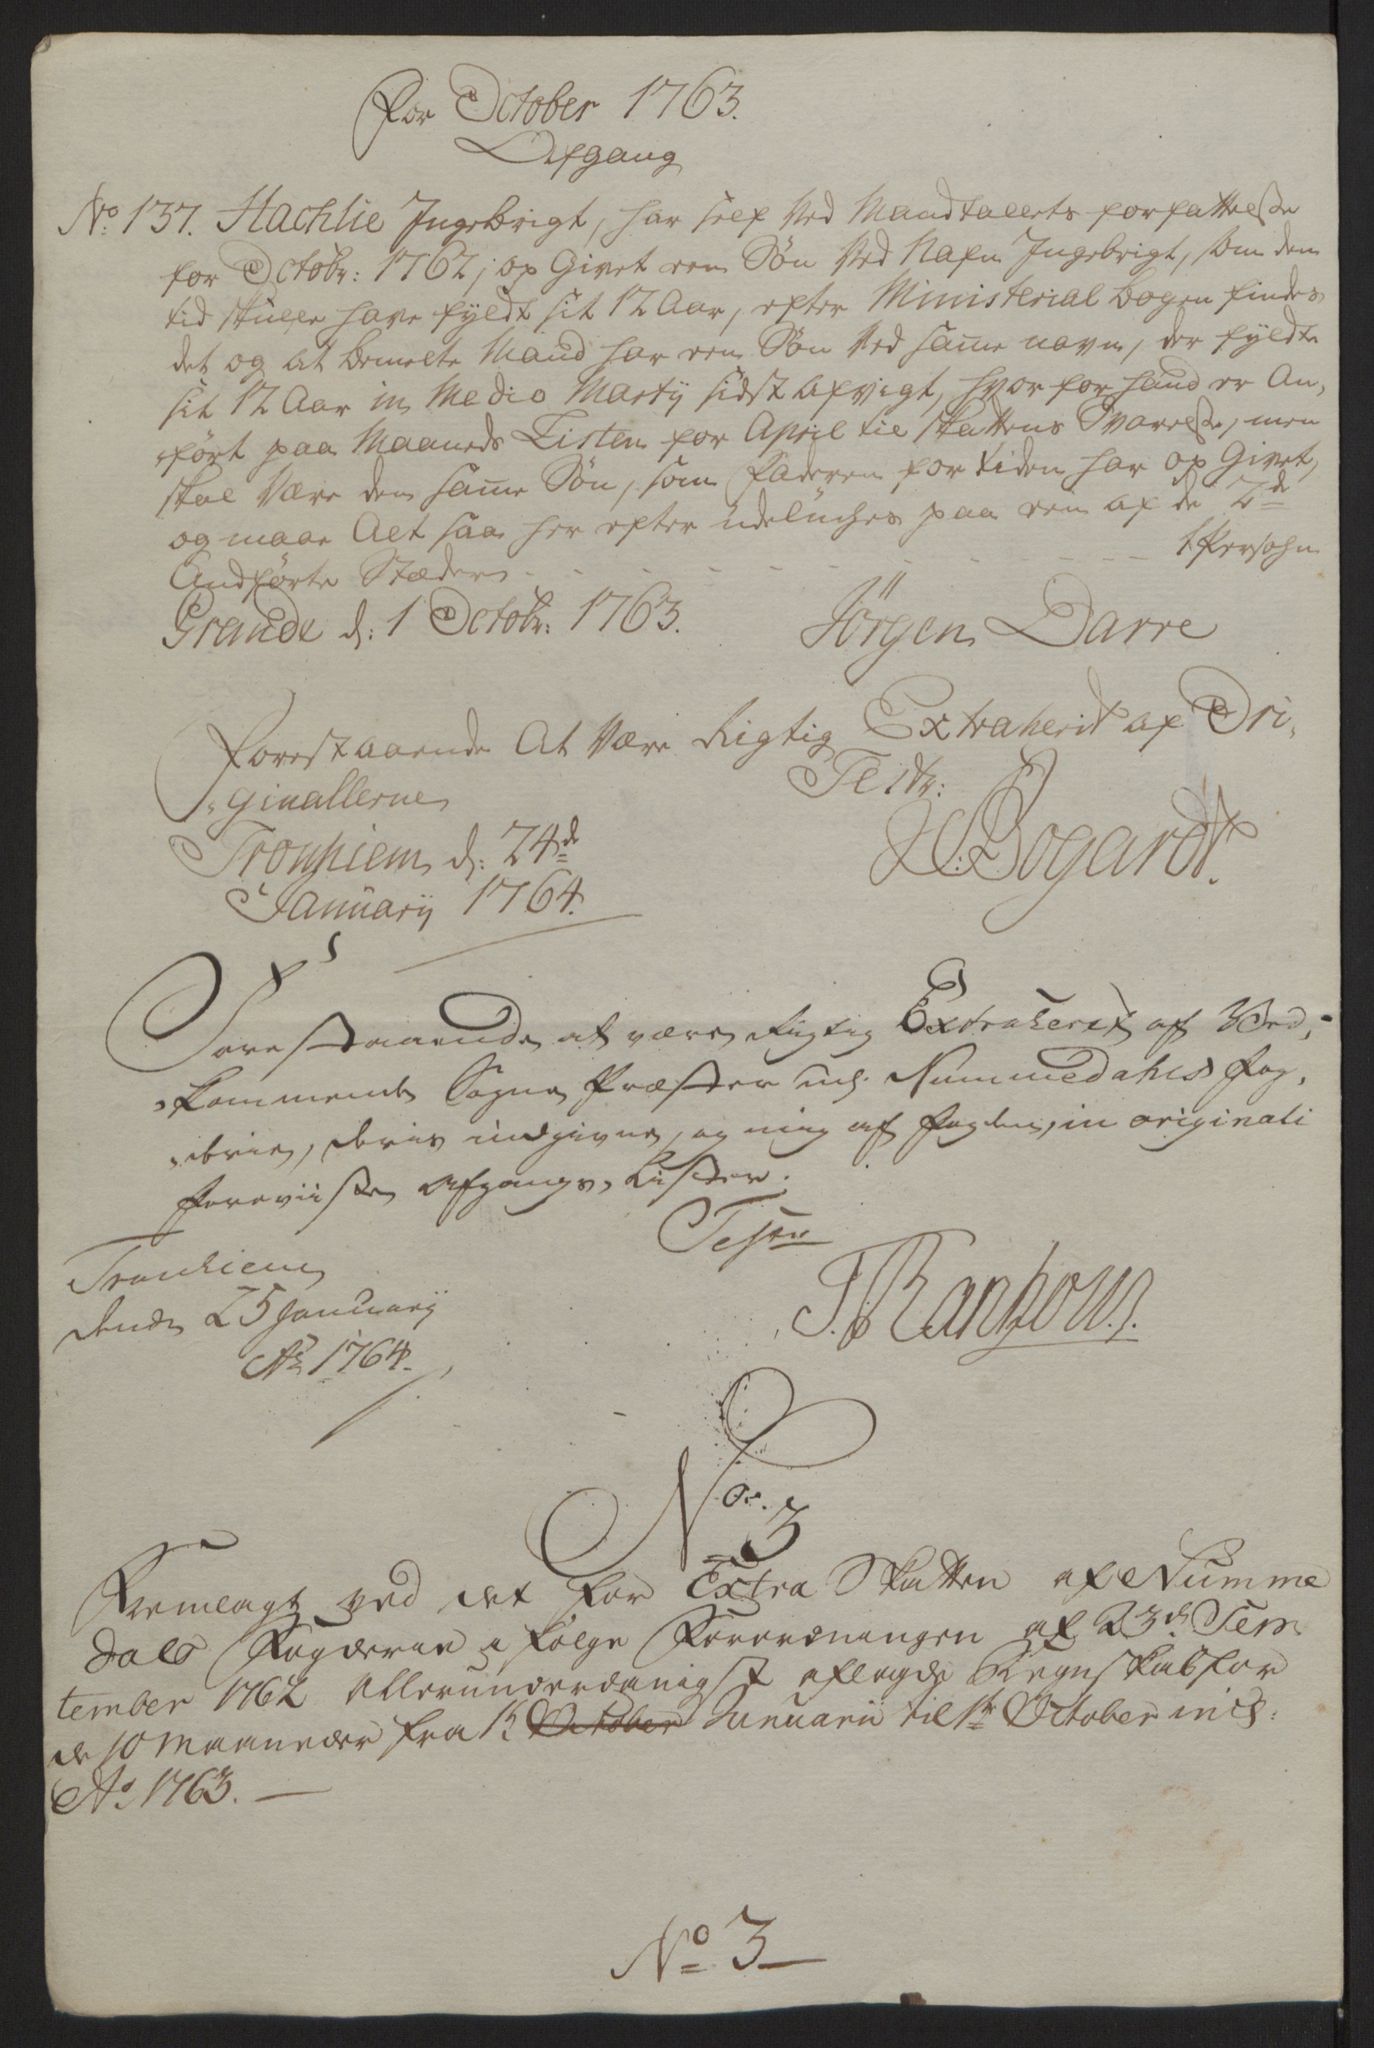 For October 1763.
Afgang
No. 137. Hachlie Ingebrigt, har self Ved Mandtallets forfattelsse
for Octobr: 1762, op Givet een Søn Ved Nafn Ingebrigt, som den
tid skulle have fyldt sit 12 Aar, efter Ministerial Bogen findes
det og at bemelte Mand har een Søn Ved samme navn, der fyldte
sit 12 Aar in Medio Martij sidst afvigt, hvor for hand er An,
,ført paa Maaneds Listen for April til skattens Svarelsse, men
skal Være den samme Søn, som Faderen for tiden har op Givet,
og maae Alt saa her efter udeluches paa een af de 2de
Andførte Stæder - - - - - - - - 1. Persohn
Grande d: 1 Octobr: 1763. Jørgen Darre
Forestaaende At Være Rigtig Extraherit af Ori,
,ginallerne Test:
Tronhiem d: 24de
Januarij 1764. HBogardt.
Forestaaende at være Rigtig Extraherit af Ved,
,kommende Sogne Præster udj Nummedahls Fog,
,derie, deris indgivne, og mig af Fogden, in originali
foreviiste Afgangs Lister.
Tester
Tronhiem
dende 25 Januarij
Ao 1764. 
No. 3
Fremlagt ved det for Extra Skatten af Numme
dals Fogderie i følge Forordningen af 23de Sep
tember 1762 allerunderdanigst aflagde Regnskab for
de 10 Maaneder fra 1te October Januarii til 1te October incl:
Ao 1763.
No 3